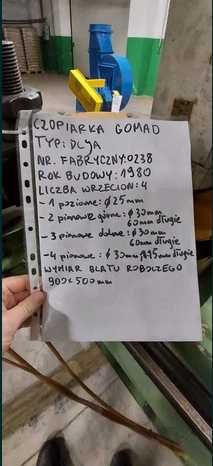 CZOPIARKA GOMAD
TYP: DCYA
NR. FABRYCZNY:0238
ROK BUDOWY: 1980
LICZBA WRZECION: 4
- 1 poziome: Ø 25mm
- 2 pionowe górne: Ø 30mm
60mm długie
- 3 pionowe dolne: Ø 30mm
60mm długie
- 4 pionowe: Ø 30mm długie
WYMIAR BLATU ROBOCZEGO
900x500mm